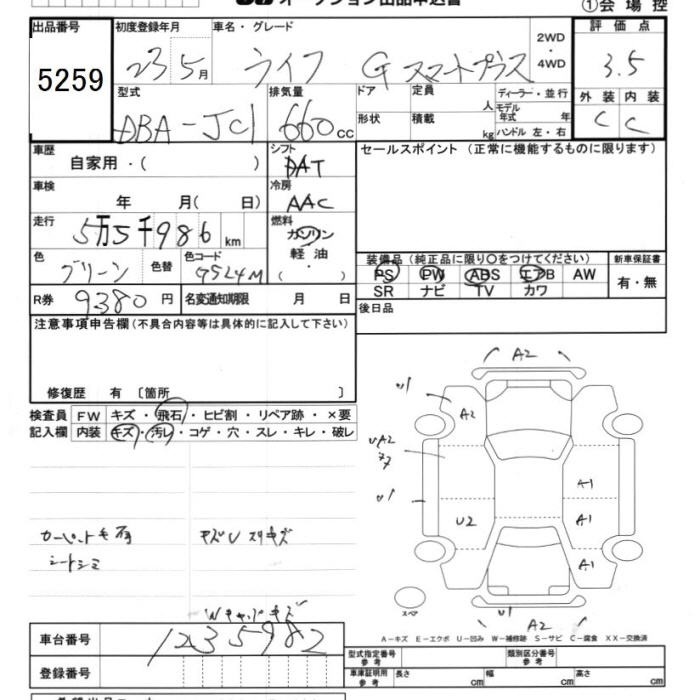 オークション出品申込書
①会場控
出品番号
5259
初度登録年月
車名・グレード
評価点
23 5月
ライフ G スマートプラス
2WD・4WD
3.5
型式
排気量
ドア
定員 人
ディーラー・並行
外装 内装
DBA-JC1
660cc
形状
積載 kg
モデル年式 年
ハンドル 左・右
C C
車歴
自家用・( )
シフト
DAT
セールスポイント(正常に機能するものに限ります)
車検
年 月( 日)
冷房
AAC
走行
5万5千986km
燃料
ガソリン
軽油
( ・ )
色
グリーン
色替
色コード
G524M
装備品(純正品に限り〇をつけてください)
新車保証書
PS PW ABS エアB AW
SR ナビ TV カワ
有・無
R券
9380円
名変通知期限 月 日
後日品
注意事項申告欄(不具合内容等は具体的に記入して下さい)
修復歴 有 〔箇所 〕
検査員記入欄
FW キズ・飛石・ヒビ割・リペア跡・×要
内装 キズ・汚レ・コゲ・穴・スレ・キレ・破レ
カーペット毛有
シートシミ
キズU スリキズ
(A2)
U1
A2
UA2
U1
A1
U2
A1
A1
スペア
U1
(A2)
A-キズ E-エクボ U-凹み W-補修跡 S-サビ C-腐食 XX-交換済
車台番号
1235982
登録番号
型式指定番号 参考
類別区分番号 参考
車庫証明用 参考
長さ cm
幅 cm
高さ cm